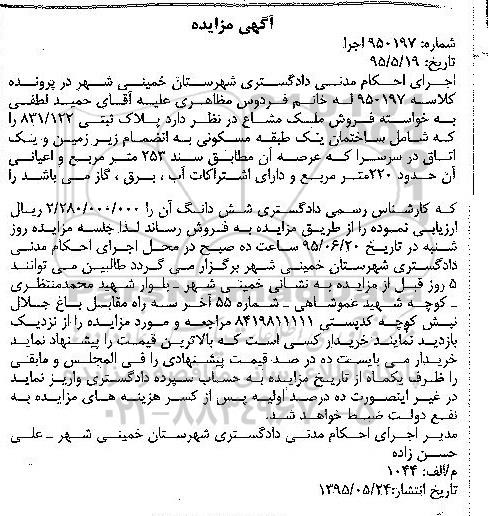 آگهی مزایده
شماره: ۹۵۰۱۹۷ اجرا
تاریخ: ۹۵/۵/۱۹
اجرای احکام مدنی دادگستری شهرستان خمینی شهر در پرونده
کلاسه ۹۵۰۱۹۷ له خانم فردوس مظاهری علیه آقای حمید لطفی
به خواسته فروش ملک مشاع در نظر دارد پلاک ثبتی ۸۳۱/۱۲۲ را
که شامل ساختمان یک طبقه مسکونی به انضمام زیر زمین و یک
اتاق در سرسرا که عرصه آن مطابق سند ۲۵۳ متر مربع و اعیانی
آن حدود ۲۲۰متر مربع و دارای اشتراکات آب ، برق ، گاز می باشد را
که کارشناس رسمی دادگستری شش دانگ آن را ۲/۲۸۰/۰۰۰/۰۰۰ ریال
ارزیابی نموده را از طریق مزایده به فروش رساند لذا جلسه مزایده روز
شنبه در تاریخ ۹۵/۰۶/۲۰ ساعت ده صبح در محل اجرای احکام مدنی
دادگستری شهرستان خمینی شهر برگزار می گردد طالبین می توانند
۵ روز قبل از مزایده به نشانی خمینی شهر - بلوار شهید محمدمنتظری
ـ کوچه شهید عموشاهی ـ شماره ۵۵ آخر سه راه مقابل باغ جلال
نبش کوچه کدپستی ۸۴۱۹۸۱۱۱۱۱ مراجعه و مورد مزایده را از نزدیک
بازدید نمایند خریدار کسی است که بالاترین قیمت را پیشنهاد نماید
خریدار می بایست ده در صد قیمت پیشنهادی را فی المجلس و مابقی
را ظرف یکماه از تاریخ مزایده به حساب سپرده دادگستری واریز نماید
در غیر اینصورت ده درصد اولیه پس از کسر هزینه های مزایده به
نفع دولت ضبط خواهد شد.
مدیر اجرای احکام مدنی دادگستری شهرستان خمینی شهر ـ علی
حسن زاده
م/الف: ۱۰۴۴
تاریخ انتشار:۱۳۹۵/۰۵/۲۴